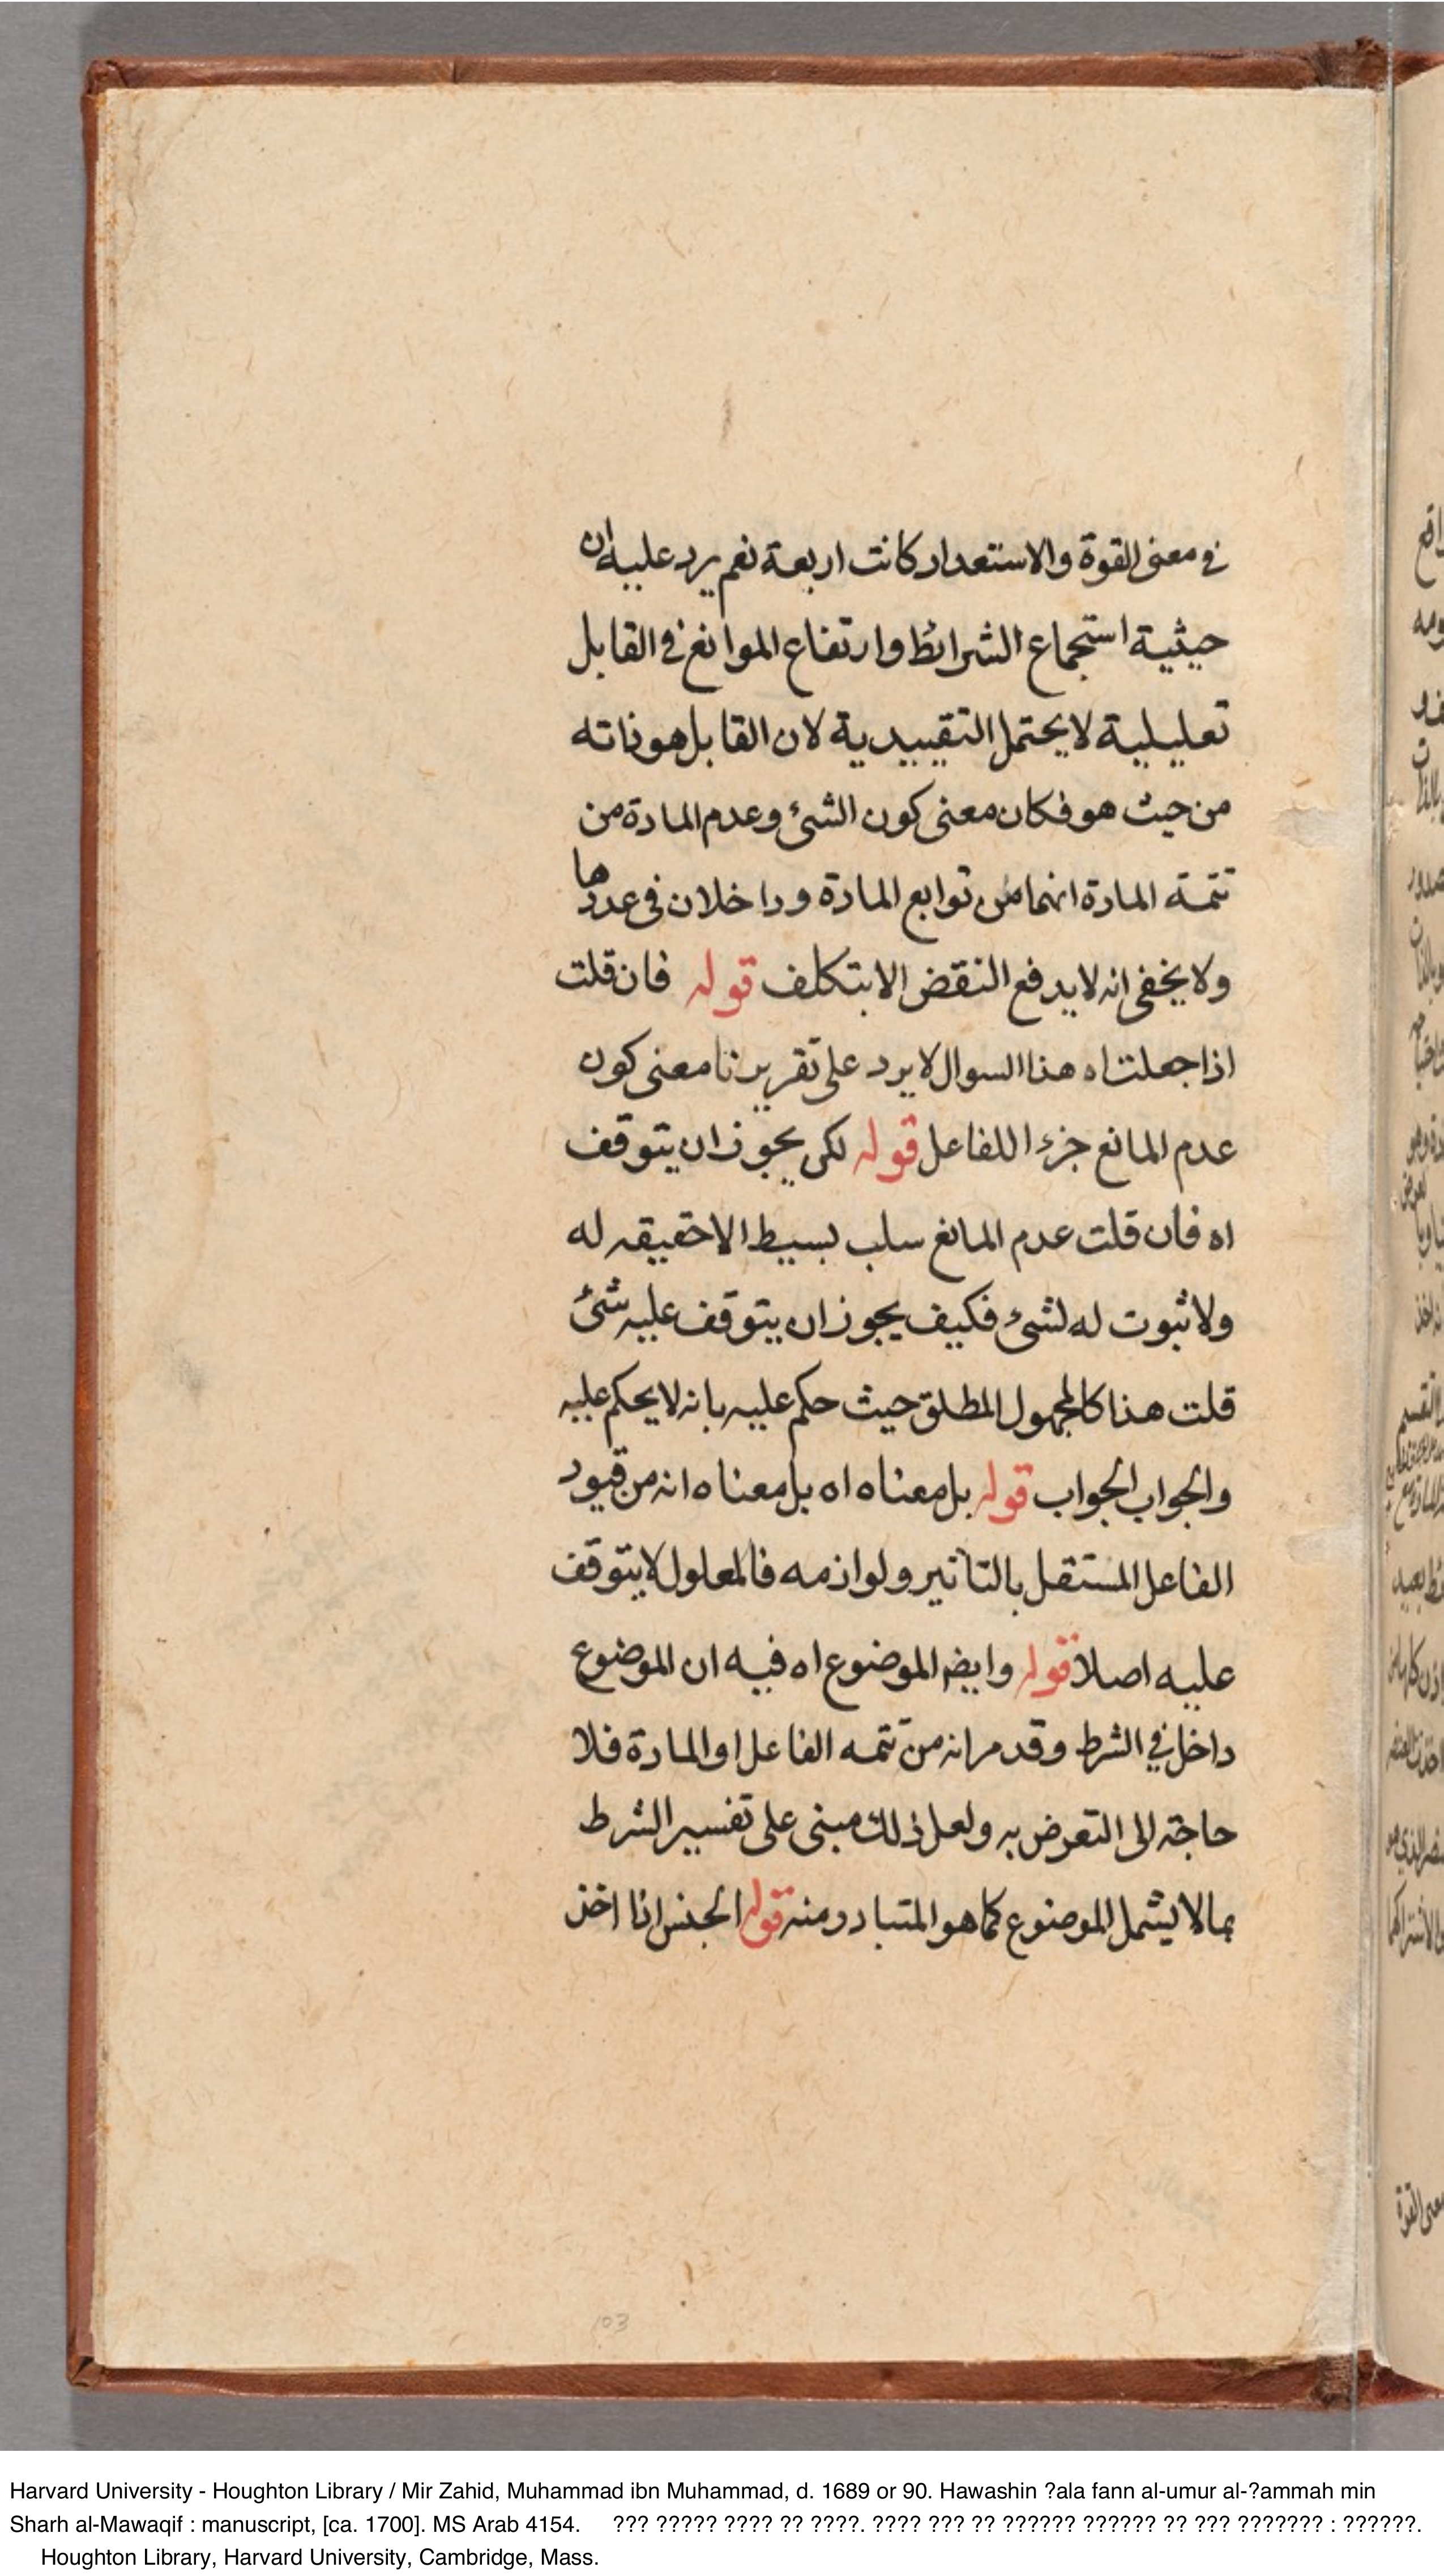 في معنى القوة والاستعداد كانت اربعة نعم يرد عليه ان
حيثية استجماع الشرائط وارتفاع الموانغ في القابل
تعليلية لا يحتمل التقييدية لان القابل هو ذاته
من حيث هو فكان معنى كون الشئ وعدم المادة من
تتمة المادة انهما من توابع المادة وداخلان في عددها
ولا يخفى انه لا يدفع النقض الا بتكلف قوله فان قلت
اذا جعلت اه هذا السوال لا يرد على تقريرنا معنى كون
عدم المانع جزءا للفاعل قوله لكن يجوز ان يتوقف
اه فان قلت عدم المانغ سلب بسيط الاحقيقه له
ولا ثبوت له لشئ فكيف يجوز ان يتوقف عليه شئ
قلت هذا كالمجهول المطلق حيث حكم عليه بانه لا يحكم عليه
والجواب الجواب قوله بل معناه اه بل معناه انه من قيود
الفاعل المستقل بالتاثير ولوازمه فالمعلول لا يتوقف
عليه اصلا قوله وايضا الموضوع اه فيه ان الموضوع
داخل في الشرط وقد مر انه من تتمه الفاعل او المادة فلا
حاجة الى التعرض به ولعل ذلك مبنى على تفسير الشرط
بما لا يشمل الموضوع كما هو المتبادر منه قوله الجنس اذا اخذ
103
Harvard University - Houghton Library / Mir Zahid, Muhammad ibn Muhammad, d. 1689 or 90. Hawashin ?ala fann al-umur al-?ammah min
Sharh al-Mawaqif : manuscript, [ca. 1700]. MS Arab 4154. ??? ????? ???? ?? ????. ???? ??? ?? ?????? ?????? ?? ??? ??????? : ??????.
Houghton Library, Harvard University, Cambridge, Mass.